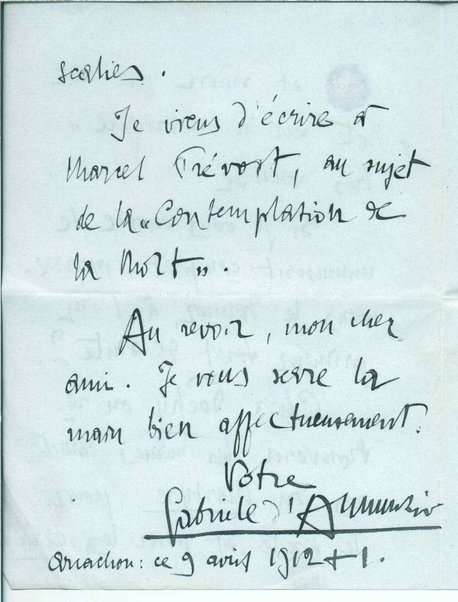 scolies.
Je viens d'écrire à
Marcel Prévost, au sujet
de la « Contemplation de
la Mort ».
Au revoir, mon cher
ami. Je vous serre la
main bien affectueusement.
Votre
Gabriele d'Annunzio
Arcachon : ce 9 avril 1912 + 1.